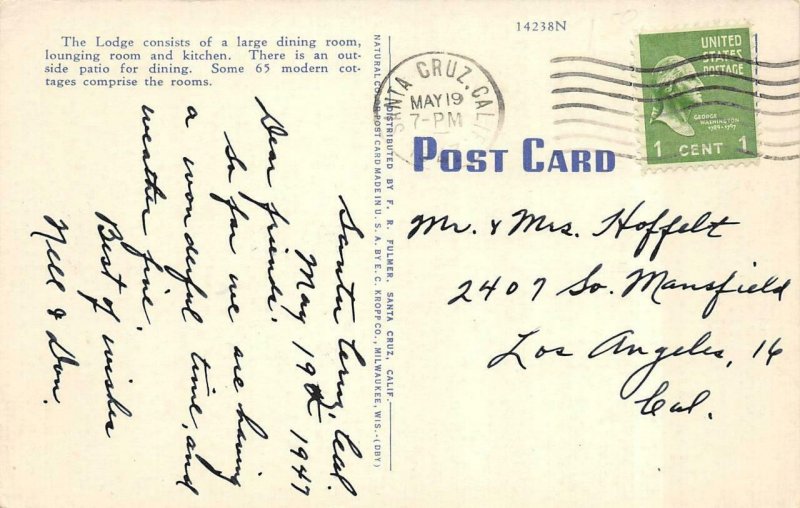 The Lodge consists of a large dining room,
lounging room and kitchen. There is an out-
side patio for dining. Some 65 modern cot-
tages comprise the rooms.
Santa Cruz, Cal.
May 19th 1947
Dear friends:
So far we are having
a wonderful time, and
weather fine.
Best of wishes
Nell & Don.
NATURAL COLOR POST CARD MADE IN U. S. A. BY E. C. KROPP CO., MILWAUKEE, WIS.-(DBY)
DISTRIBUTED BY F. R. FULMER, SANTA CRUZ, CALIF.
14238N
SANTA CRUZ, CALIF.
MAY 19
7-PM
UNITED
STATES
POSTAGE
GEORGE
WASHINGTON
1789-1797
1 CENT 1
POST CARD
Mr. & Mrs. Hoffelt
2407 So. Mansfield
Los Angeles, 16
Cal.